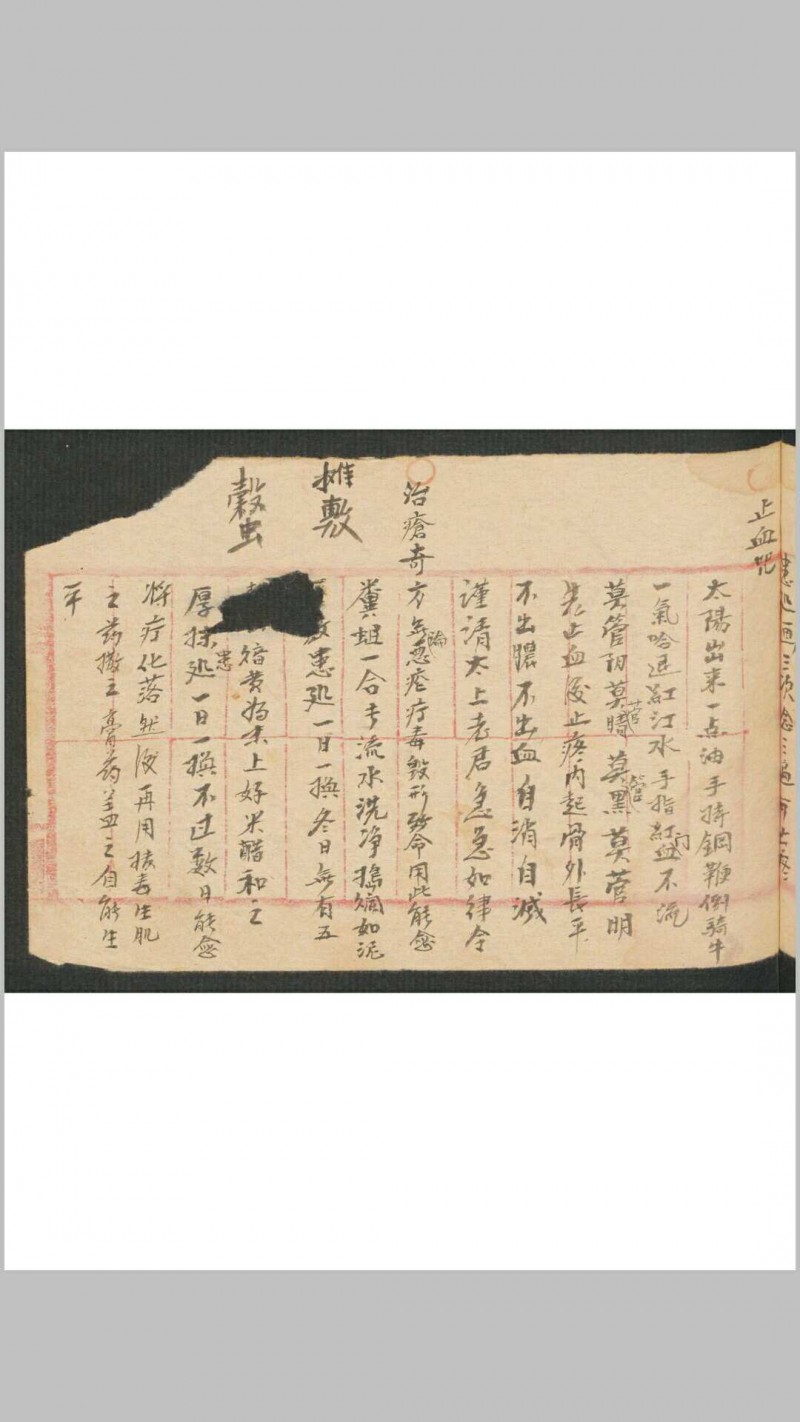 止血咒
太陽出来一点油手持鋼鞭倒騎牛
一氣哈退紅江水手指紅門血不流
莫管初莫管晴莫管黑莫管明
先止血後止疼内起骨外長平
不出膿不出血自消自滅
謹清太上老君急急如律令
治瘡奇方無論惡瘡疔毒毀形致命用此能愈
糞蛆一合去流水洗净搗爛如泥
攤敷
敷患処一日一換冬日無有五
穀虫
黄為末上好米醋和之
厚抹患処一日一換不过数日能愈
將疔化落然後再用拔毒生肌
之葯撒之膏葯盖之自能生
平